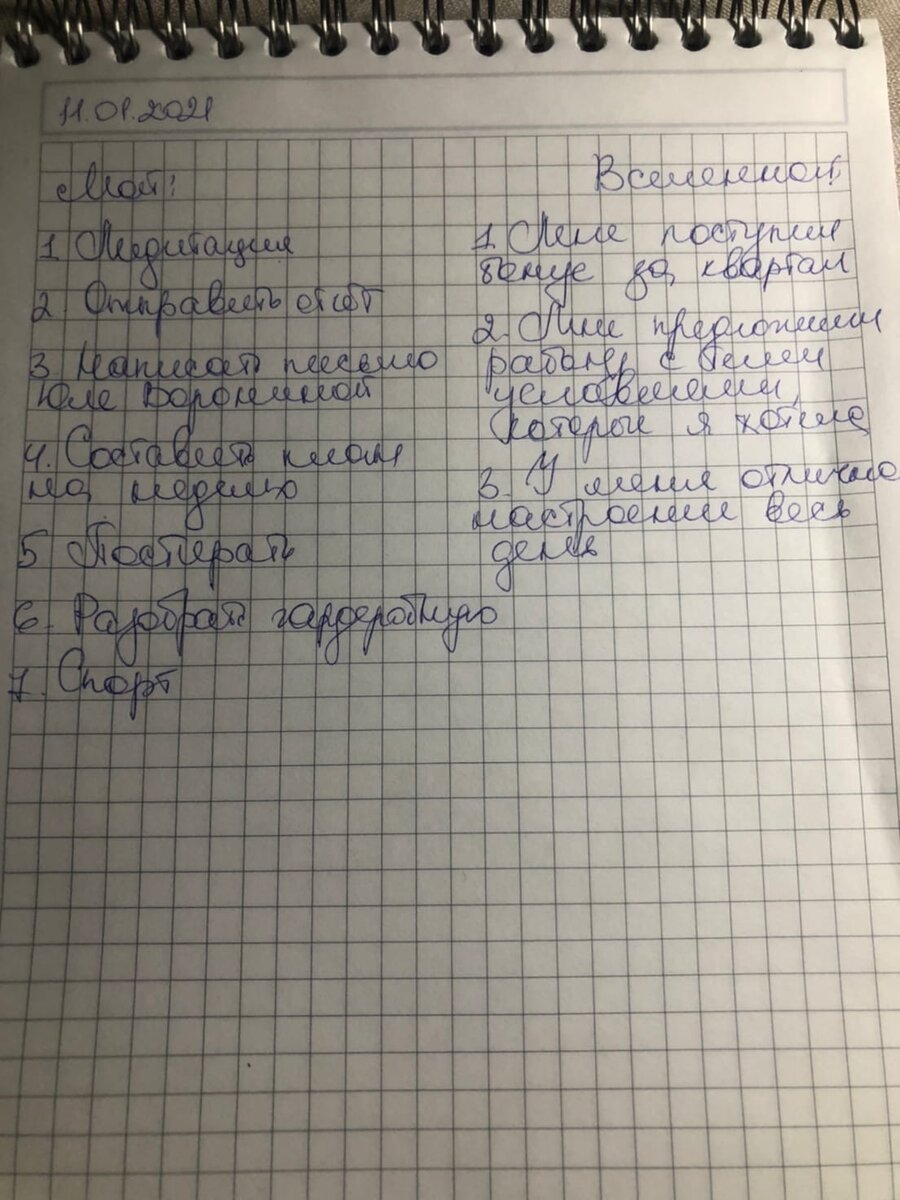 11.01.2021
Мой:
1 Медитация
2 Отправить отчёт
3 Написать письмо
Юле Ворониной
4. Составить план
на неделю
5 Постирать
6. Разобрать гардеробную
7. Спорт
Вселенной:
1. Мне поступил
бонус за квартал
2. Мне предложили
работу с теми
условиями,
которые я хотела
3. У меня отличное
настроение весь
день